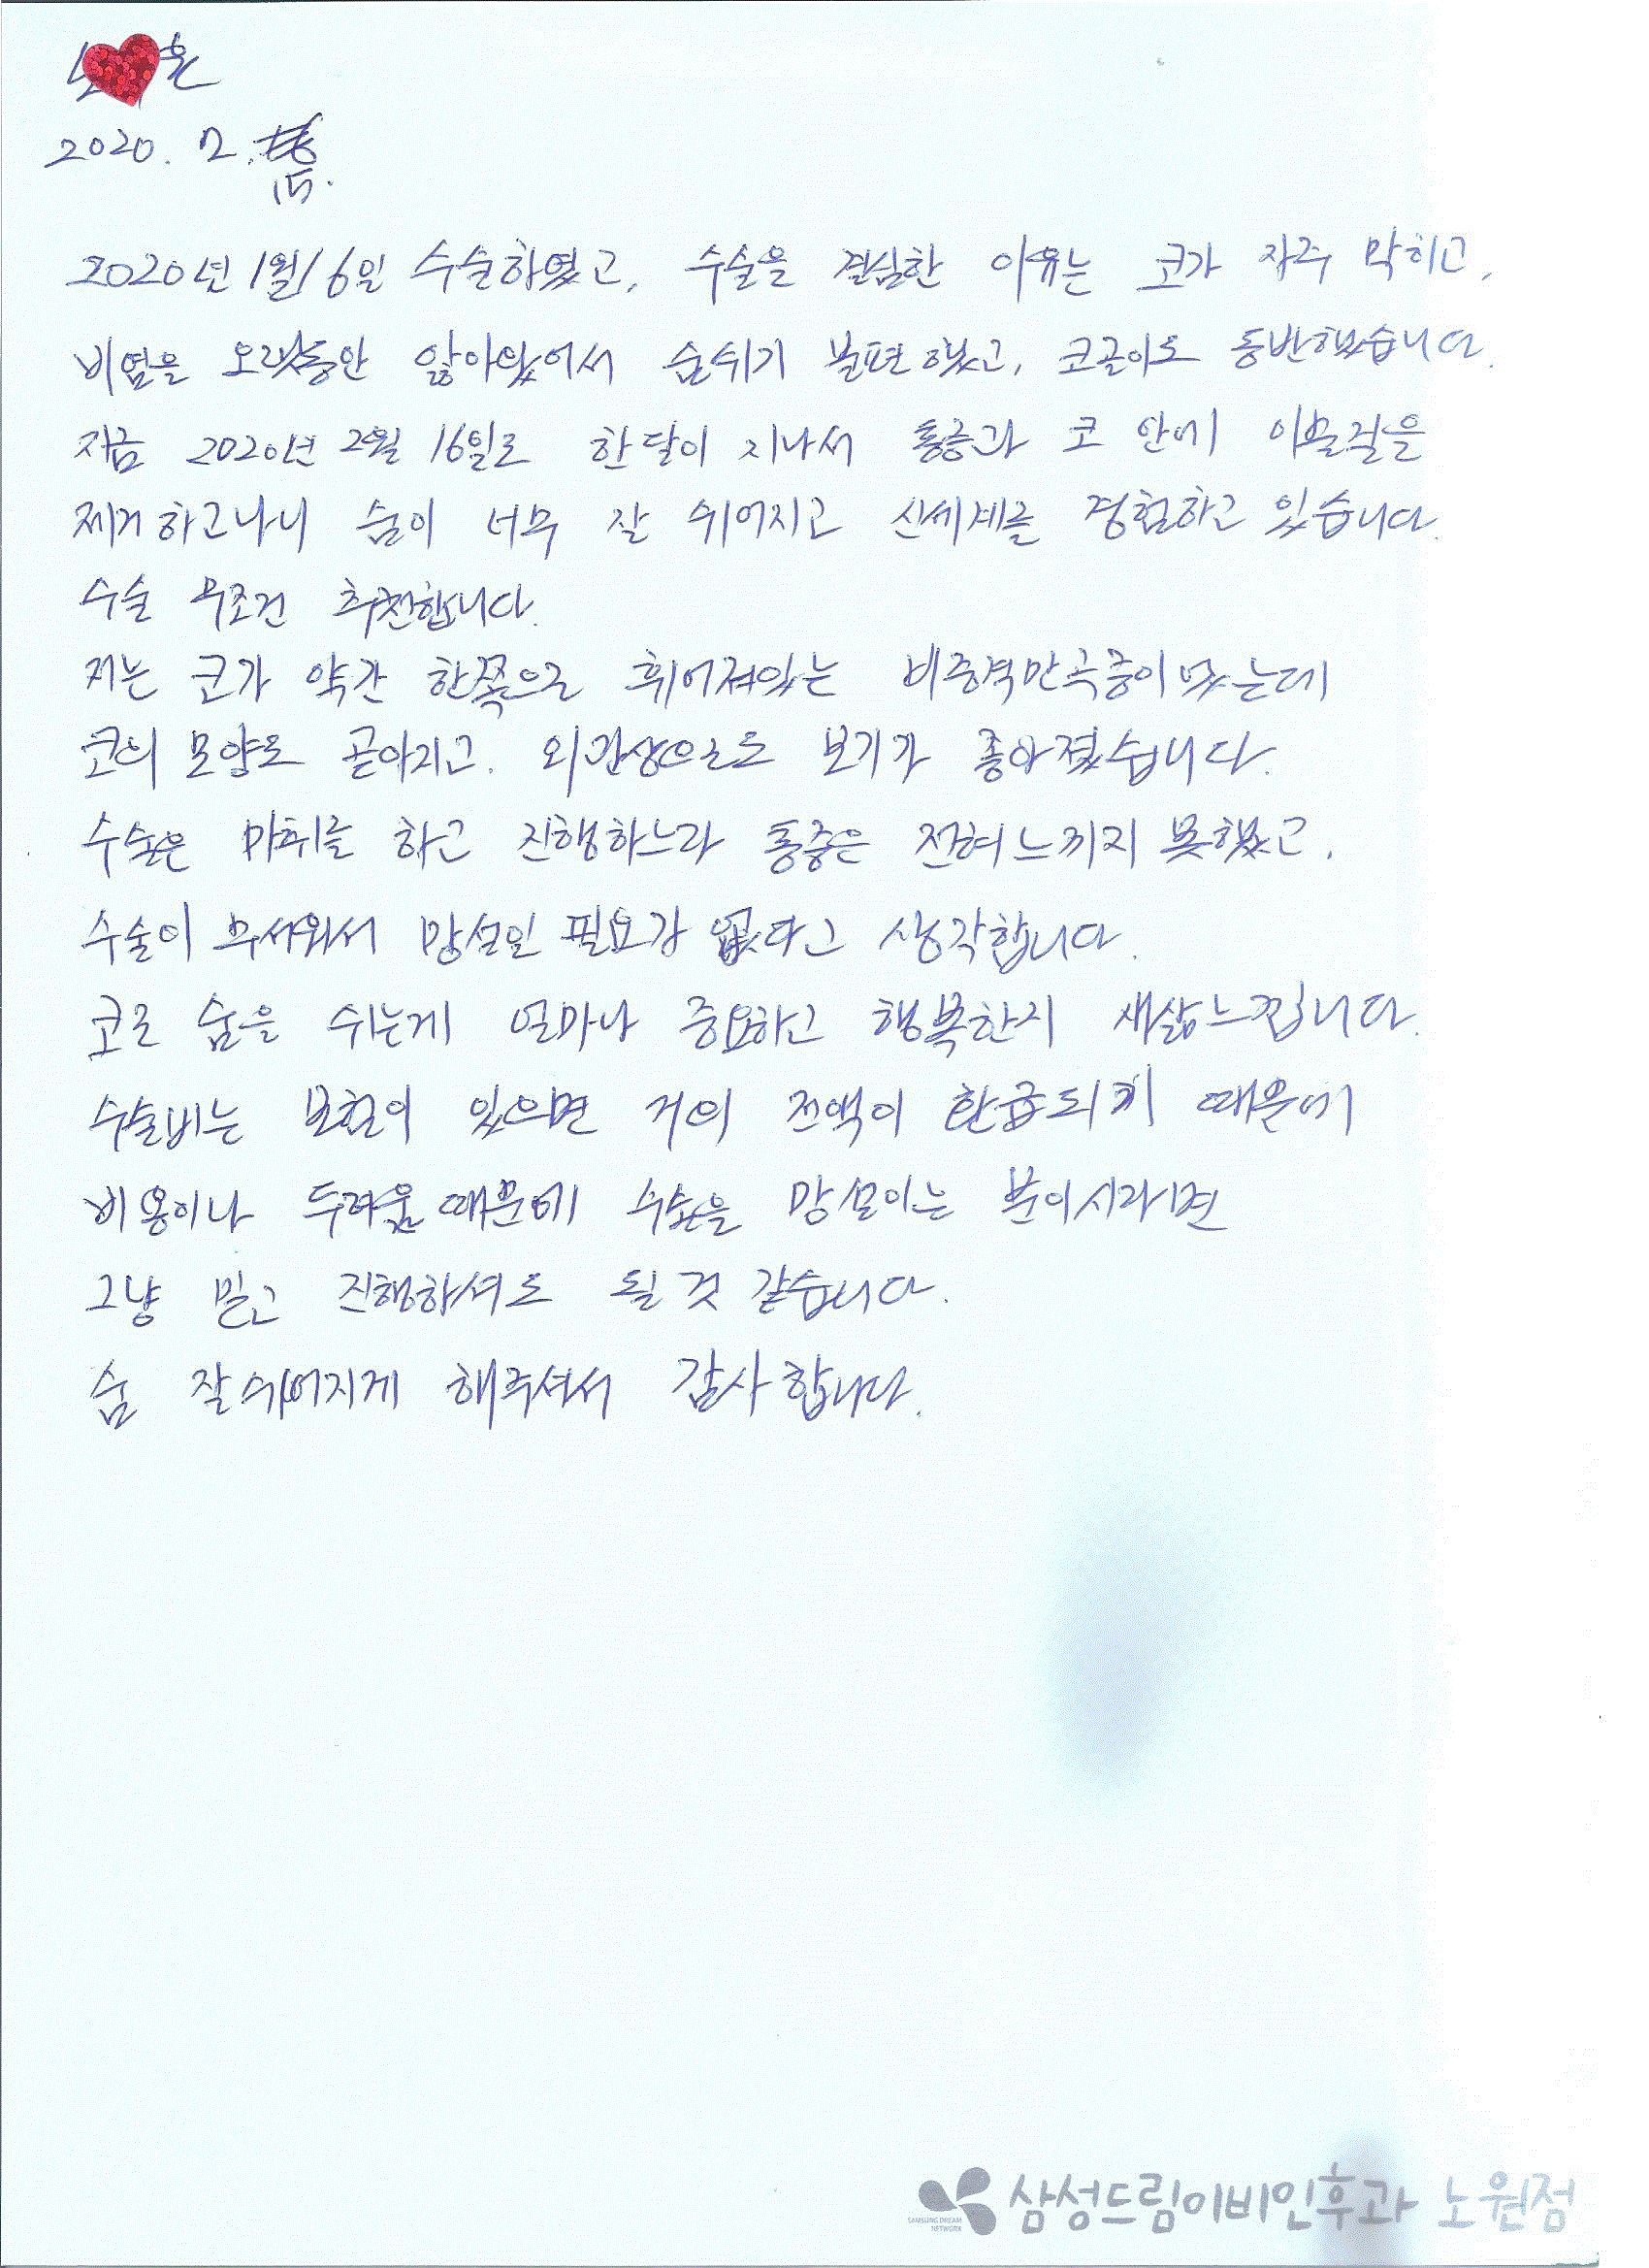 2020. 2.
15.
2020년 1월 16일 수술하였고, 수술을 결심한 이유는 코가 자주 막히고,
비염을 오랫동안 앓아왔어서 숨쉬기 불편했고, 코골이도 동반했습니다.
지금 2020년 2월 16일로 한달이 지나서 통증과 코 안에 이물질을
제거하고나니 숨이 너무 잘 쉬어지고 신세계를 경험하고 있습니다.
수술 무조건 추천합니다.
저는 코가 약간 한쪽으로 휘어져있는 비중격만곡증이었는데
코의 모양도 곧아지고. 외관상으로도 보기가 좋아졌습니다.
수술은 마취를 하고 진행하느라 통증은 전혀느끼지 못했고,
수술이 무서워서 망설일 필요가 없다고 생각합니다.
코로 숨을 쉬는게 얼마나 중요하고 행복한지 새삶느낍니다.
수술비는 보험이 있으면 거의 전액이 환급되기 때문에
비용이나 두려움때문에 수술을 망설이는 분이시라면
그냥 믿고 진행하셔도 될 것 같습니다.
숨 잘쉬어지게 해주셔서 감사합니다.
SAMSUNG DREAM NETWORK 삼성드림이비인후과 노원점